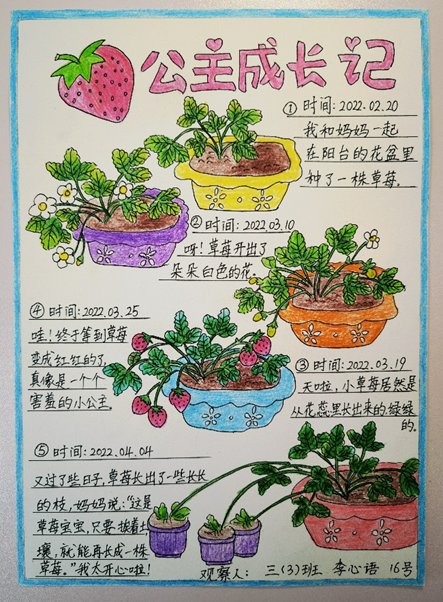 公主成长记
①时间:2022.02.20
我和妈妈一起
在阳台的花盆里
种了一株草莓。
②时间:2022.03.10
呀!草莓开出了
朵朵白色的花。
③时间:2022.03.19
天啦,小草莓居然是
从花蕊里长出来的,绿绿
的。
④时间:2022.03.25
哇!终于等到草莓
变成红红的了,
真像是一个个
害羞的小公主。
⑤时间:2022.04.04
又过了些日子,草莓长出了一些长长
的枝,妈妈说:“这是
草莓宝宝,只要挨着土
壤,就能再长成一株
草莓。”我太开心啦!
观察人: 三(3)班 李心语 16号